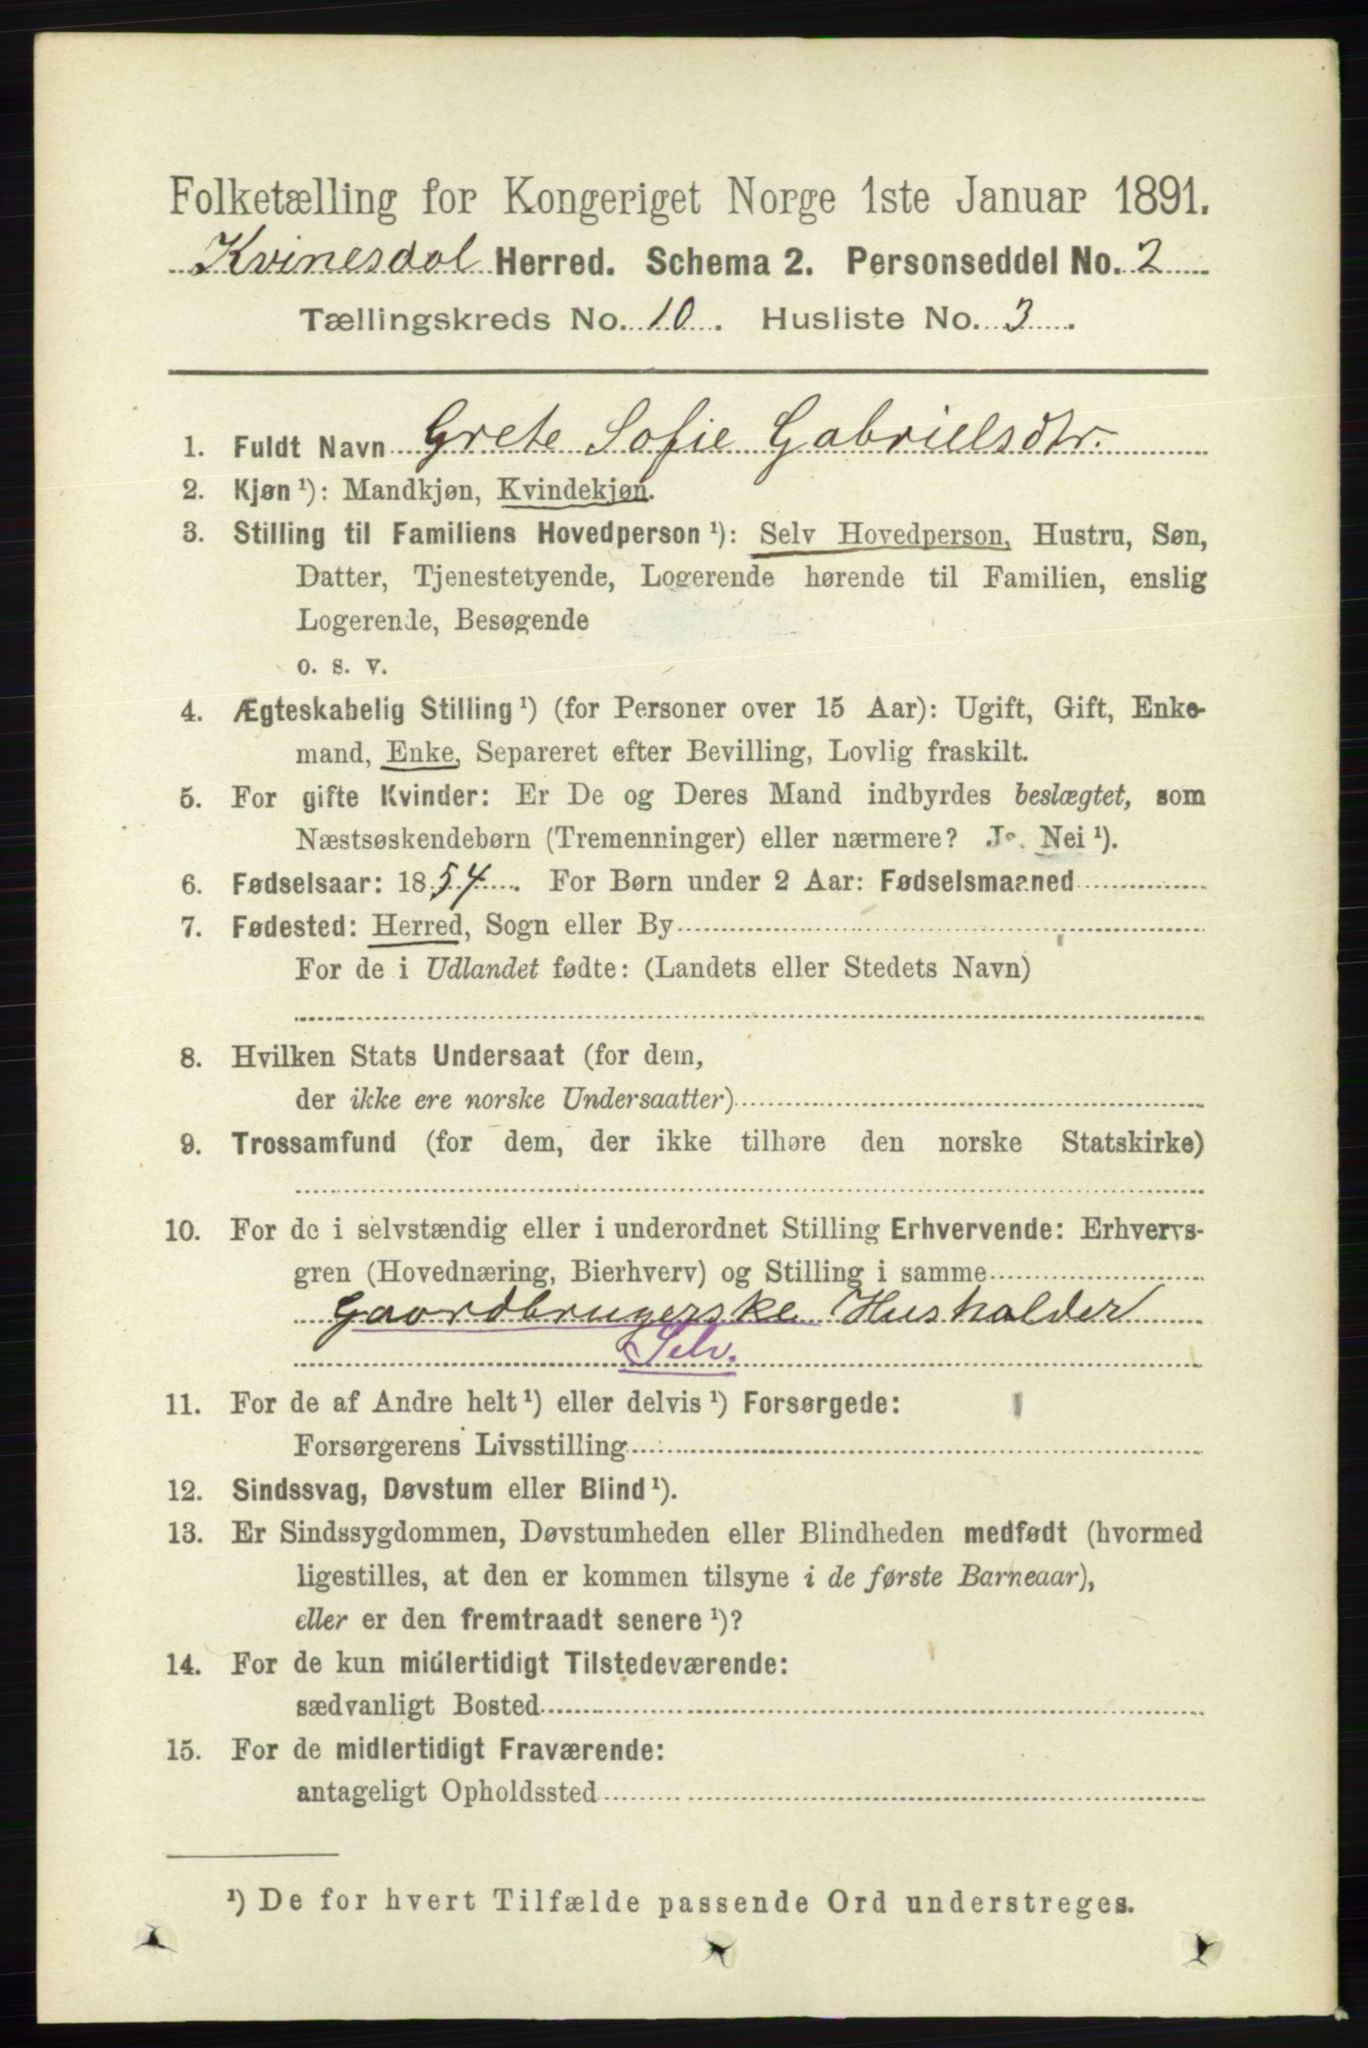 Folketælling for Kongeriget Norge 1ste Januar 1891.
Kvinesdal Herred. Schema 2. Personseddel No. 2
Tællingskreds No. 10. Husliste No. 3.
1. Fuldt Navn Grete Sofie Gabrielsdtr.
2. Kjøn ¹): Mandkjøn, Kvindekjøn.
3. Stilling til Familiens Hovedperson ¹): Selv Hovedperson, Hustru, Søn,
Datter, Tjenestetyende, Logerende hørende til Familien, enslig
Logerende, Besøgende
o. s. v.
4. Ægteskabelig Stilling ¹) (for Personer over 15 Aar): Ugift, Gift, Enke-
mand, Enke, Separeret efter Bevilling, Lovlig fraskilt.
5. For gifte Kvinder: Er De og Deres Mand indbyrdes beslægtet, som
Næstsøskendebørn (Tremenninger) eller nærmere? Ja. Nei ¹).
6. Fødselsaar: 1854. For Børn under 2 Aar: Fødselsmaaned
7. Fødested: Herred, Sogn eller By
For de i Udlandet fødte: (Landets eller Stedets Navn)
8. Hvilken Stats Undersaat (for dem,
der ikke ere norske Undersaatter)
9. Trossamfund (for dem, der ikke tilhøre den norske Statskirke)
10. For de i selvstændig eller i underordnet Stilling Erhvervende: Erhvervs-
gren (Hovednæring, Bierhverv) og Stilling i samme
Gaardbrugerske Husholder
Selv.
11. For de af Andre helt ¹) eller delvis ¹) Forsørgede:
Forsørgerens Livsstilling
12. Sindssvag, Døvstum eller Blind ¹).
13. Er Sindssygdommen, Døvstumheden eller Blindheden medfødt (hvormed
ligestilles, at den er kommen tilsyne i de første Barneaar),
eller er den fremtraadt senere ¹)?
14. For de kun midlertidigt Tilstedeværende:
sædvanligt Bosted
15. For de midlertidigt Fraværende:
antageligt Opholdssted
¹) De for hvert Tilfælde passende Ord understreges.